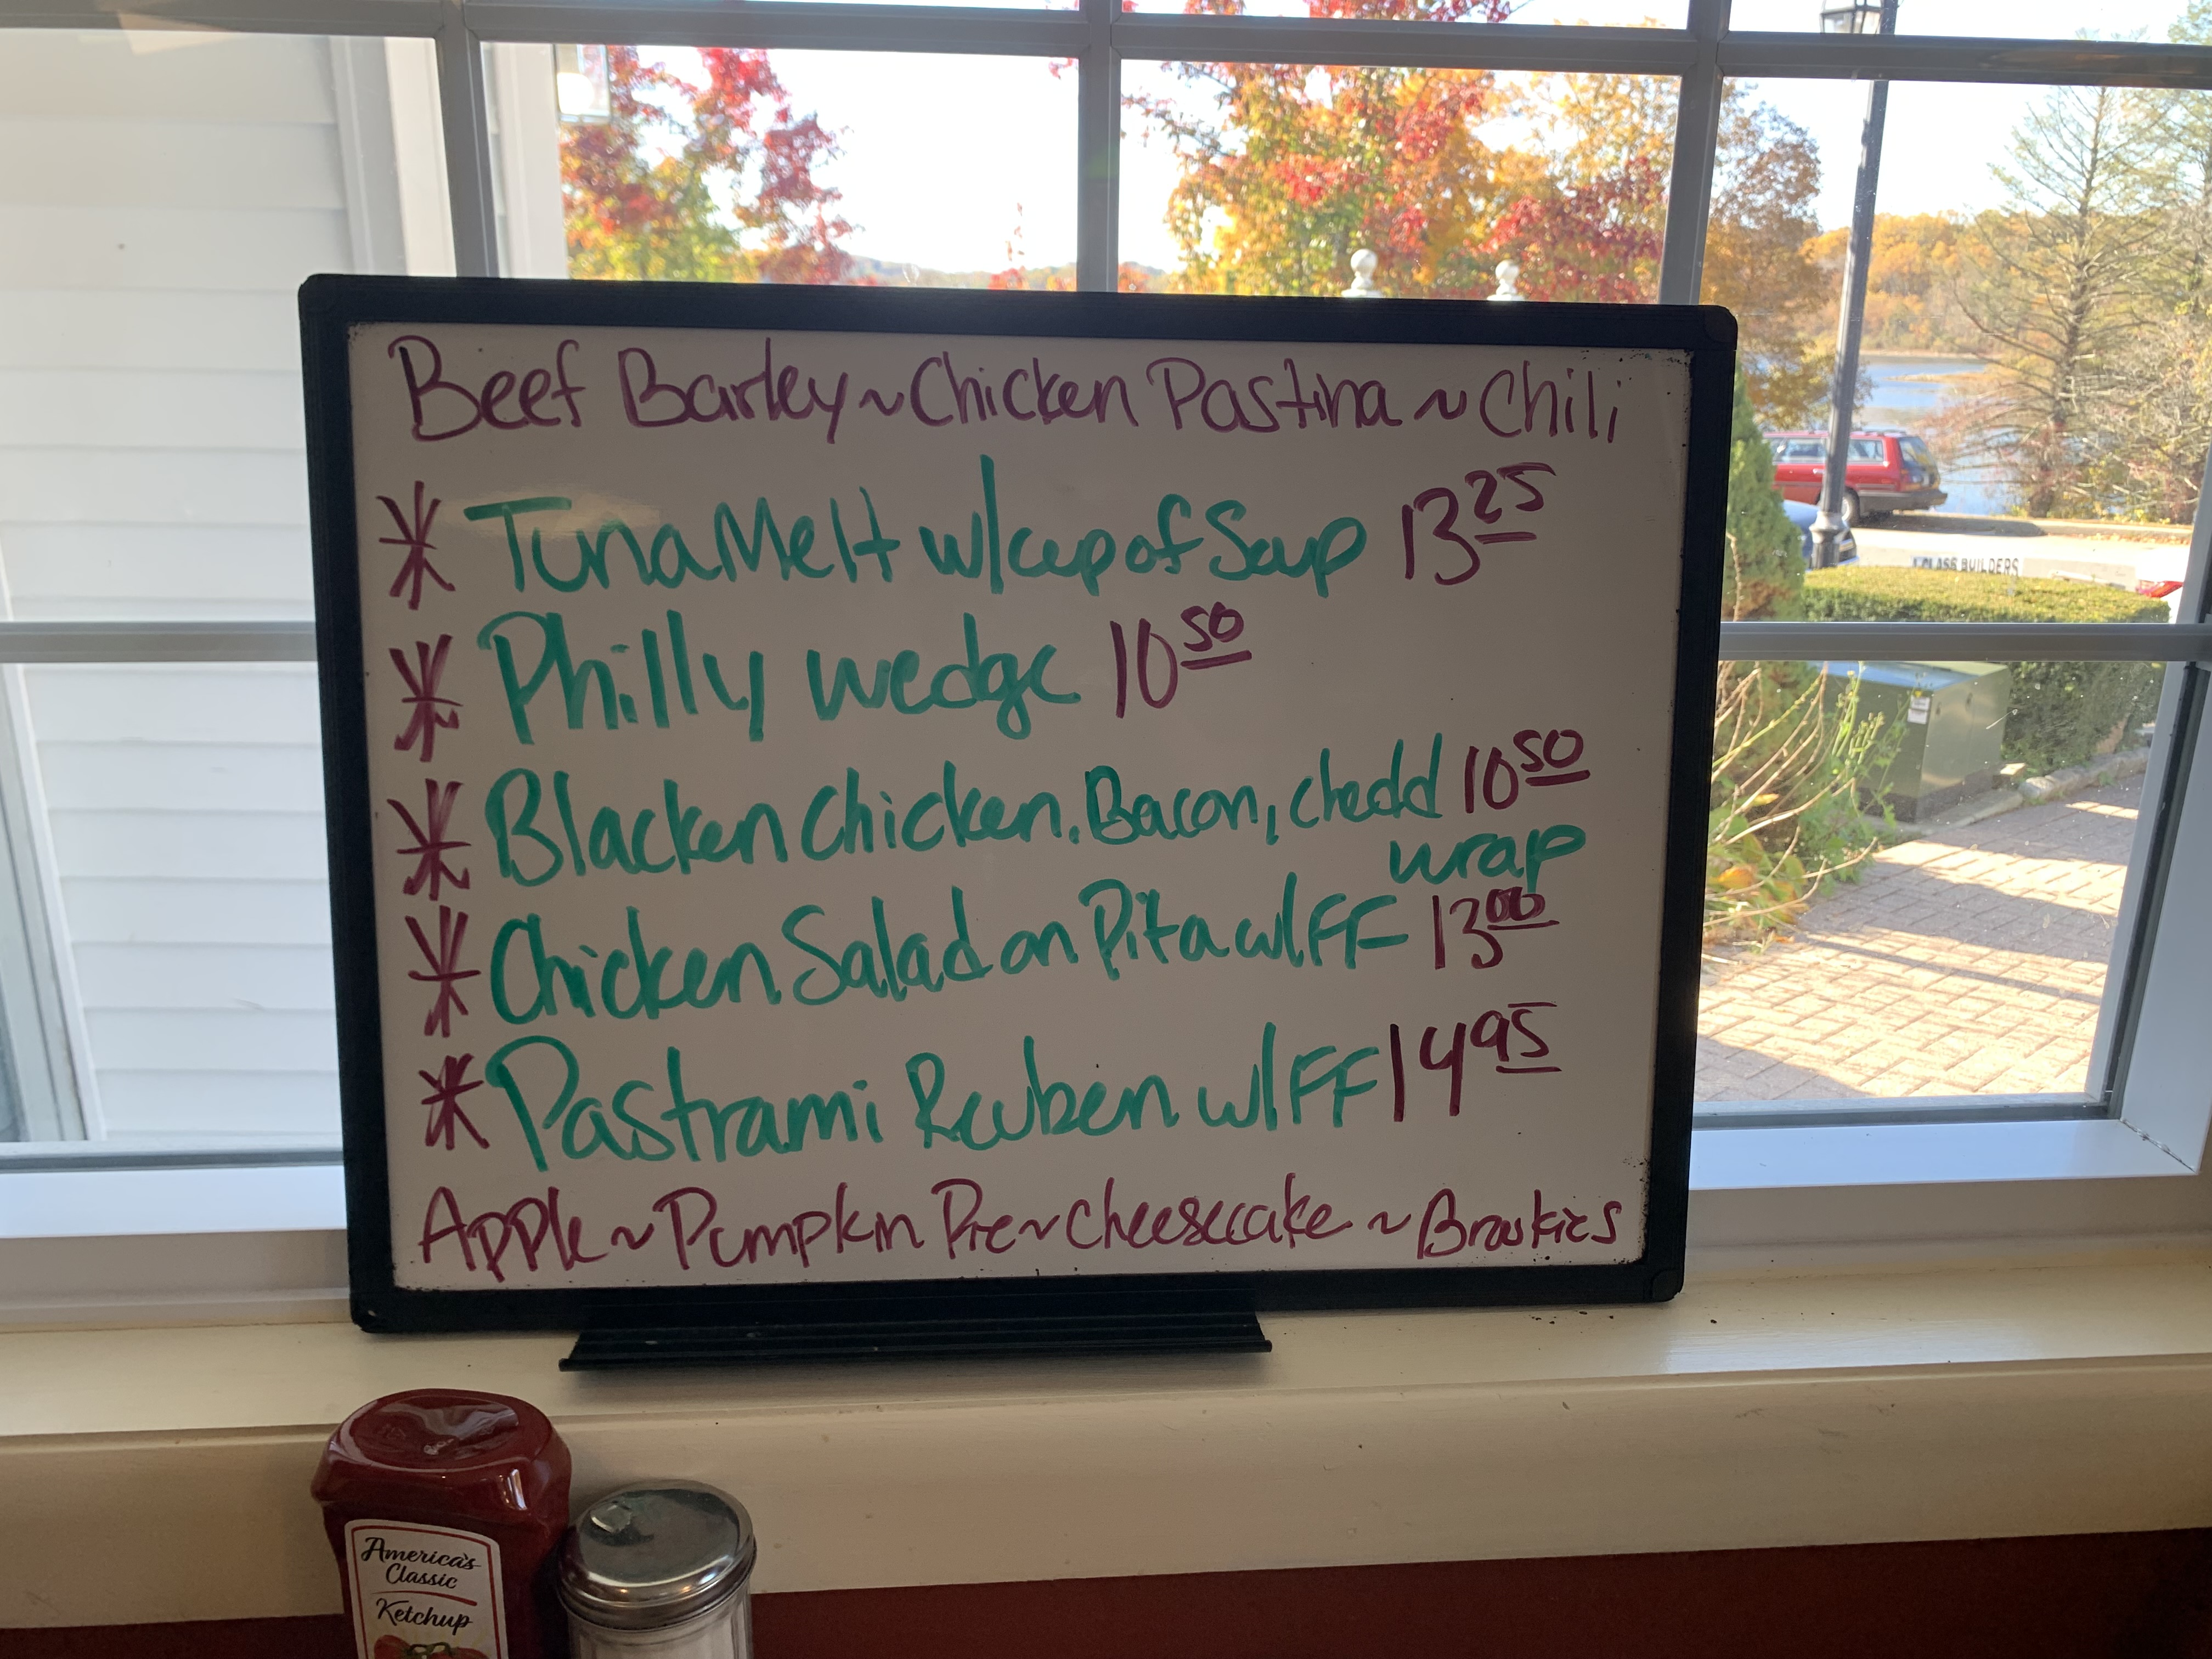 Beef Barley ~ Chicken Pastina ~ Chili
* Tuna Melt w/cup of Soup 13 25
* Philly wedge 10 50
* Blacken Chicken, Bacon, chedd 10 50
wrap
* Chicken Salad on Pita w/ FF 13 00
* Pastrami Reuben w/ FF 14 95
Apple ~ Pumpkin Pie ~ Cheesecake ~ Broskies
CLASS BUILDERS
America's
Classic
Ketchup